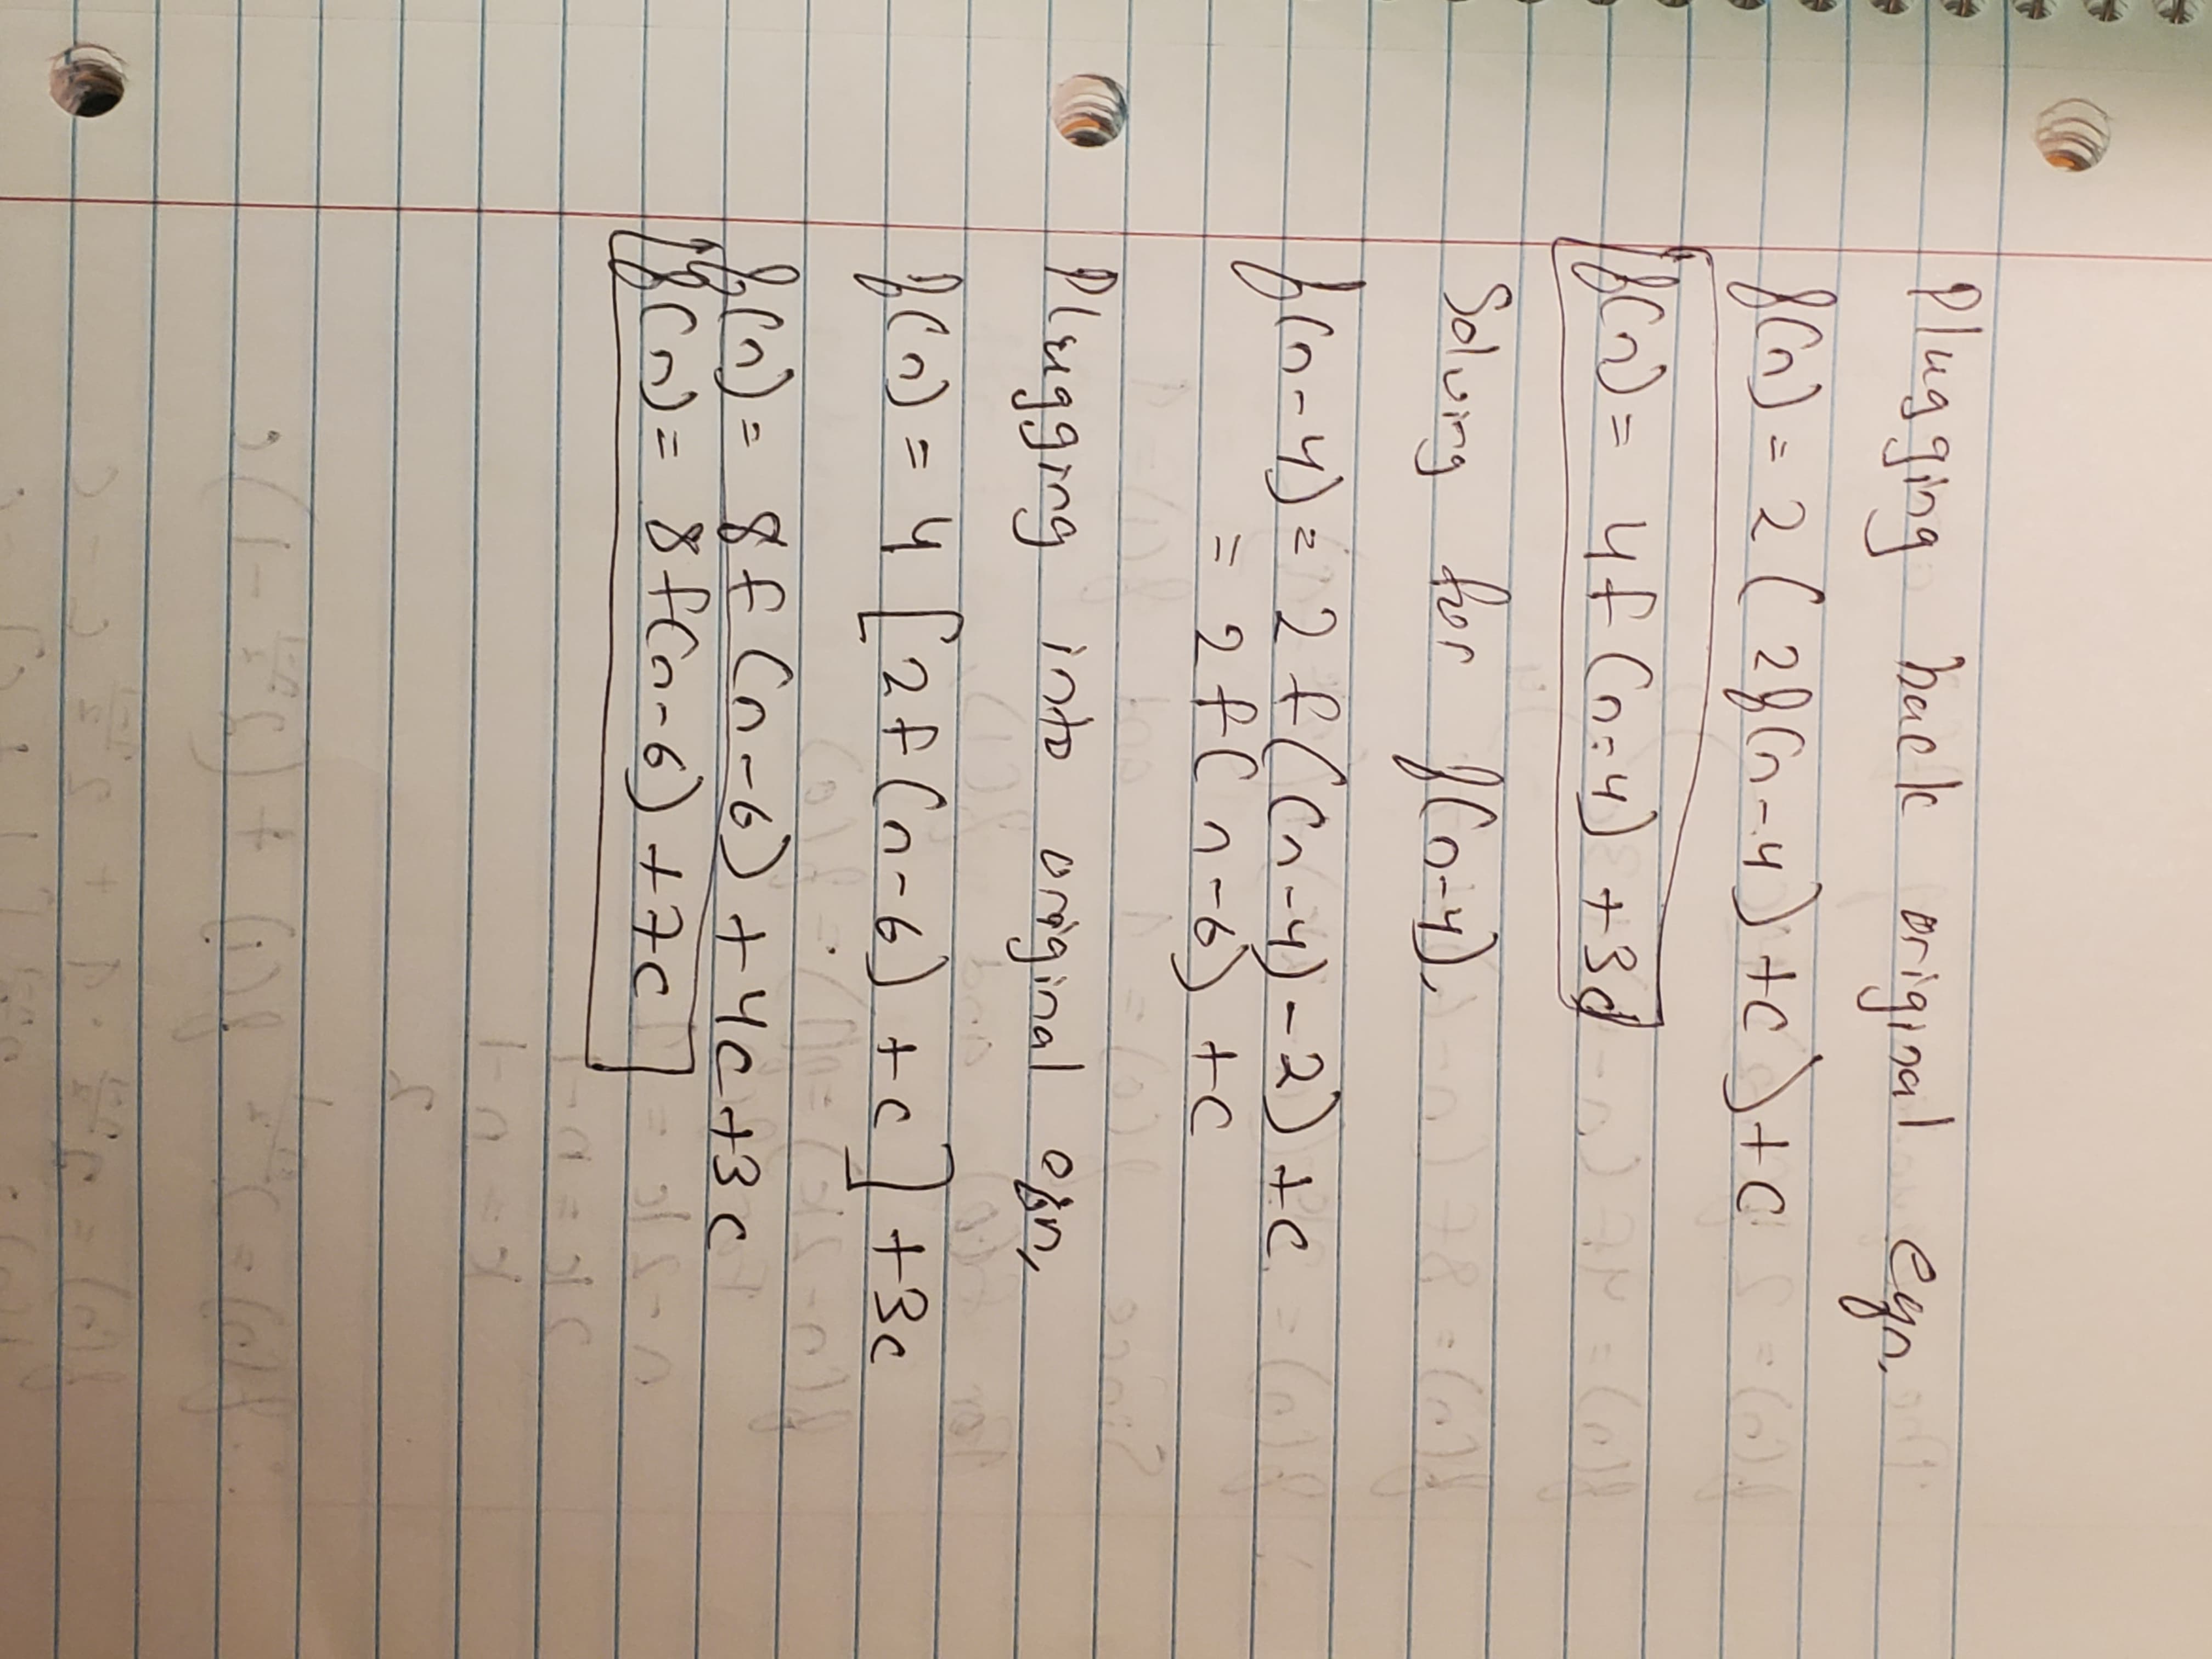 Plugging back original eqn,
f(n) = 2(2f(n-4)+c)+c
f(n) = 4f(n-4)+3c
Solving for f(n-4),
f(n-4) = 2f((n-4)-2)+c
= 2f(n-6)+c
Plugging into original eqn,
f(n) = 4[2f(n-6)+c]+3c
f(n) = 8f(n-6)+4c+3c
f(n) = 8f(n-6)+7c